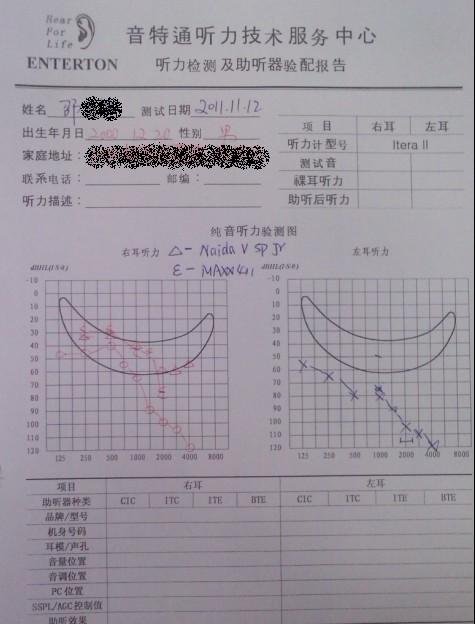 Hear
For
Life
ENTERTON
音特通听力技术服务中心
听力检测及助听器验配报告
姓名 测试日期 2011.11.12
出生年月日 2000 12 20 性别 男
家庭地址：
联系电话： 邮编：
听力描述：
项目 右耳 左耳
听力计型号 Itera II
测试音
裸耳听力
助听后听力
纯音听力验测图
右耳听力 △- Naida V SP Jr 左耳听力
ε - MAXX 411
dBHL(I·S·0) dBHL(I·S·0)
-10 0 10 20 30 40 50 60 70 80 90 100 110 120
125 250 500 1000 2000 4000 8000
-10 0 10 20 30 40 50 60 70 80 90 100 110 120
125 250 500 1000 2000 4000 8000
项目 右耳 左耳
助听器种类 CIC ITC ITE BTE CIC ITC ITE BTE
品牌/型号
机身号码
耳模/声孔
音量位置
音调位置
PC位置
SSPL/AGC控制值
助听效果